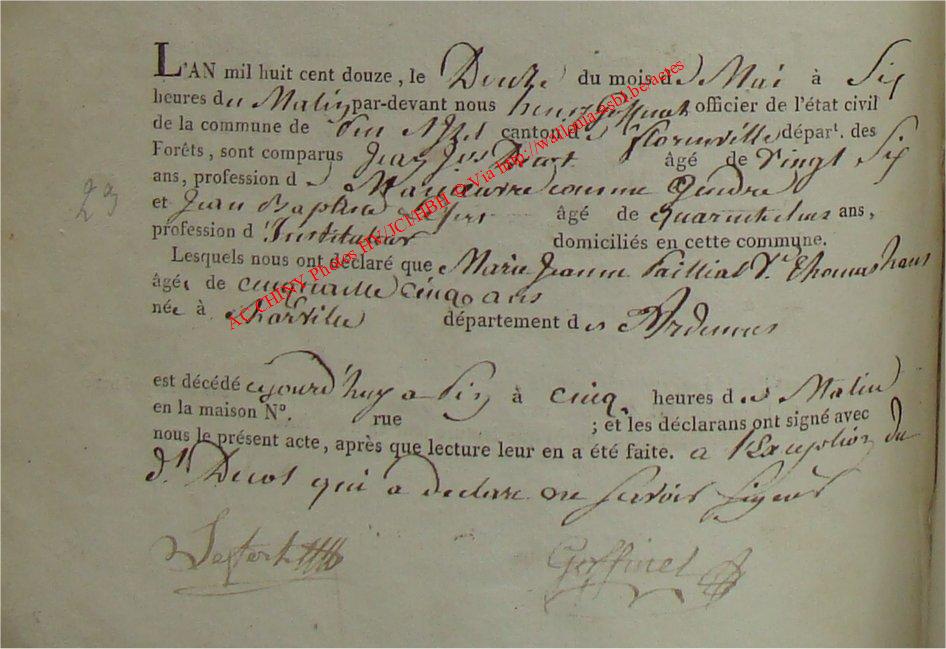 L'AN mil huit cent douze, le Douze du mois de Mai à Six
heures du Matin par-devant nous henry Goffinet officier de l'état civil
de la commune de canton de Florenville départ. des
Forêts, sont comparus Jean Jos Ducot âgé de Vingt Six
ans, profession de Manoeuvre comme Gendre
et Jean Baptiste âgé de quarante ans,
profession d'Instituteur domiciliés en cette commune.
Lesquels nous ont déclaré que Marie Jeanne Ve Thomas
âgée de cinquante cinq ans
née à Charville département des Ardennes
est décédé cejourd'huy a à cinq heures de Matin
en la maison N°. rue ; et les déclarans ont signé avec
nous le présent acte, après que lecture leur en a été faite. a l'Exception du
dt Ducot qui a declaré ne savoir signer
Goffinet
23
AC CHINY Photos HY/JCMHBH © Via http://wallonia.asbl.be/actes